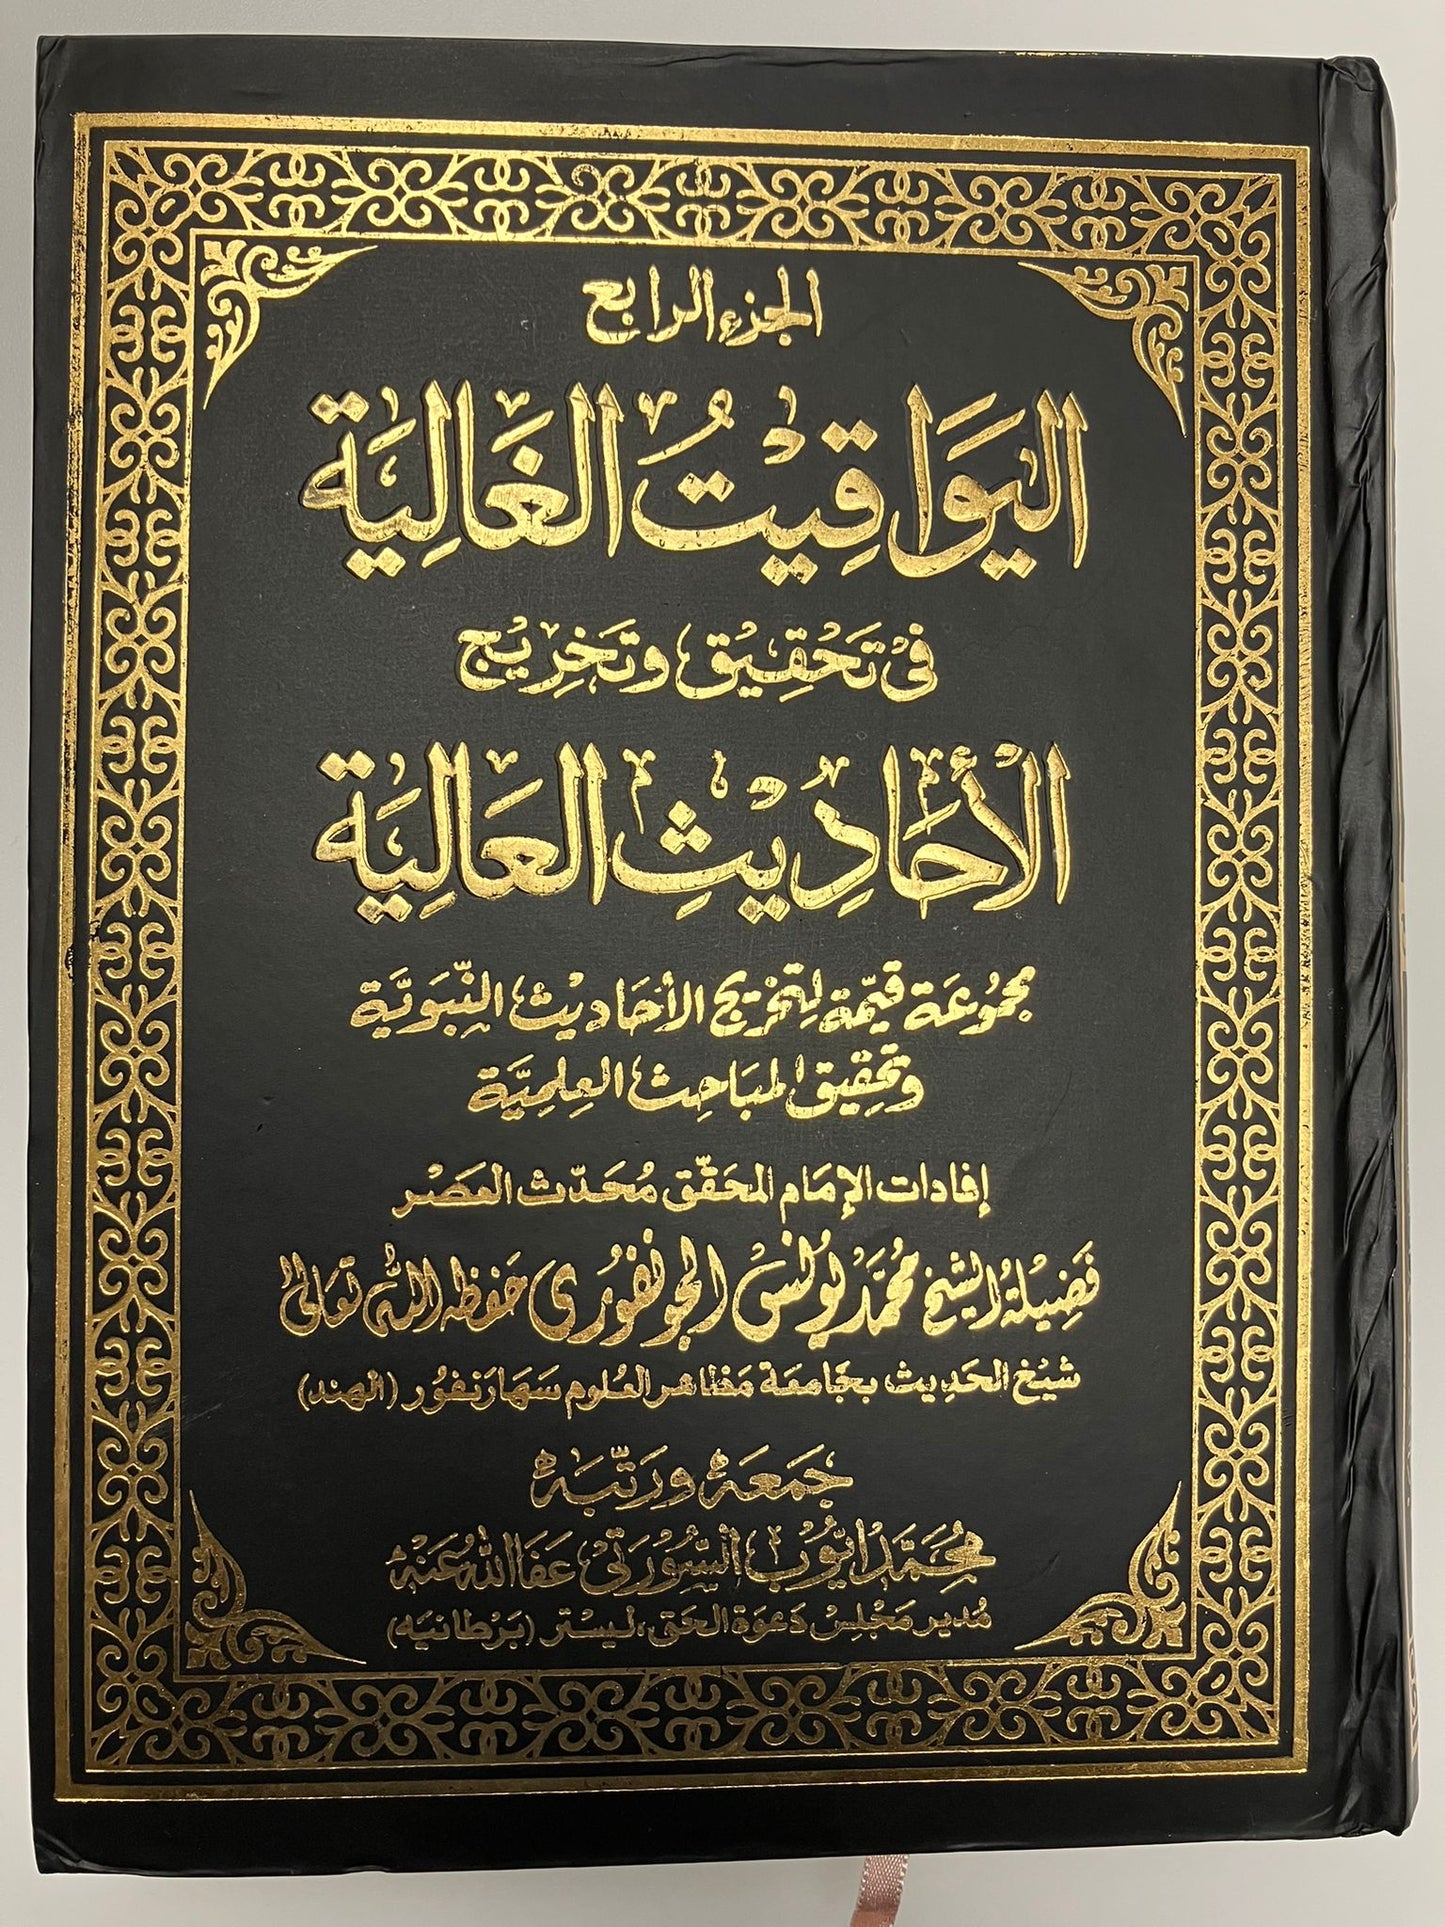 الجزء الرابع
اليَوَاقِيتُ الغَالِيَة
فِيْ تَحْقِيْقِ وَتَخْرِيْجِ
الأَحَادِيْثِ العَالِيَة
مجمُوعَة قيِّمَة لِتخريج الأحَاديث النَّبَوَيَّة
وتحقِيق المبَاحِث العِلمِيَّة
إفادات الإمَام المحَقّق مُحَدّث العَصْر
فَضِيلَةُ الشيخ مُحَمَّد يُونس الجونفُوري حَفظه الله تعَالىٰ
شيْخ الحَدِيث بجَامعَة مَظاهر العُلوم سَهَارَنفُور (الهند)
جَمَعَهُ وَرَتَّبَهُ
مُحَمَّد ايُّوبْ السُّوْرَتِيْ عَفَا اللهُ عَنْهُ
مُدير مَجْلِسْ دَعوَة الحَق، ليستر (بَرْطانيَه)